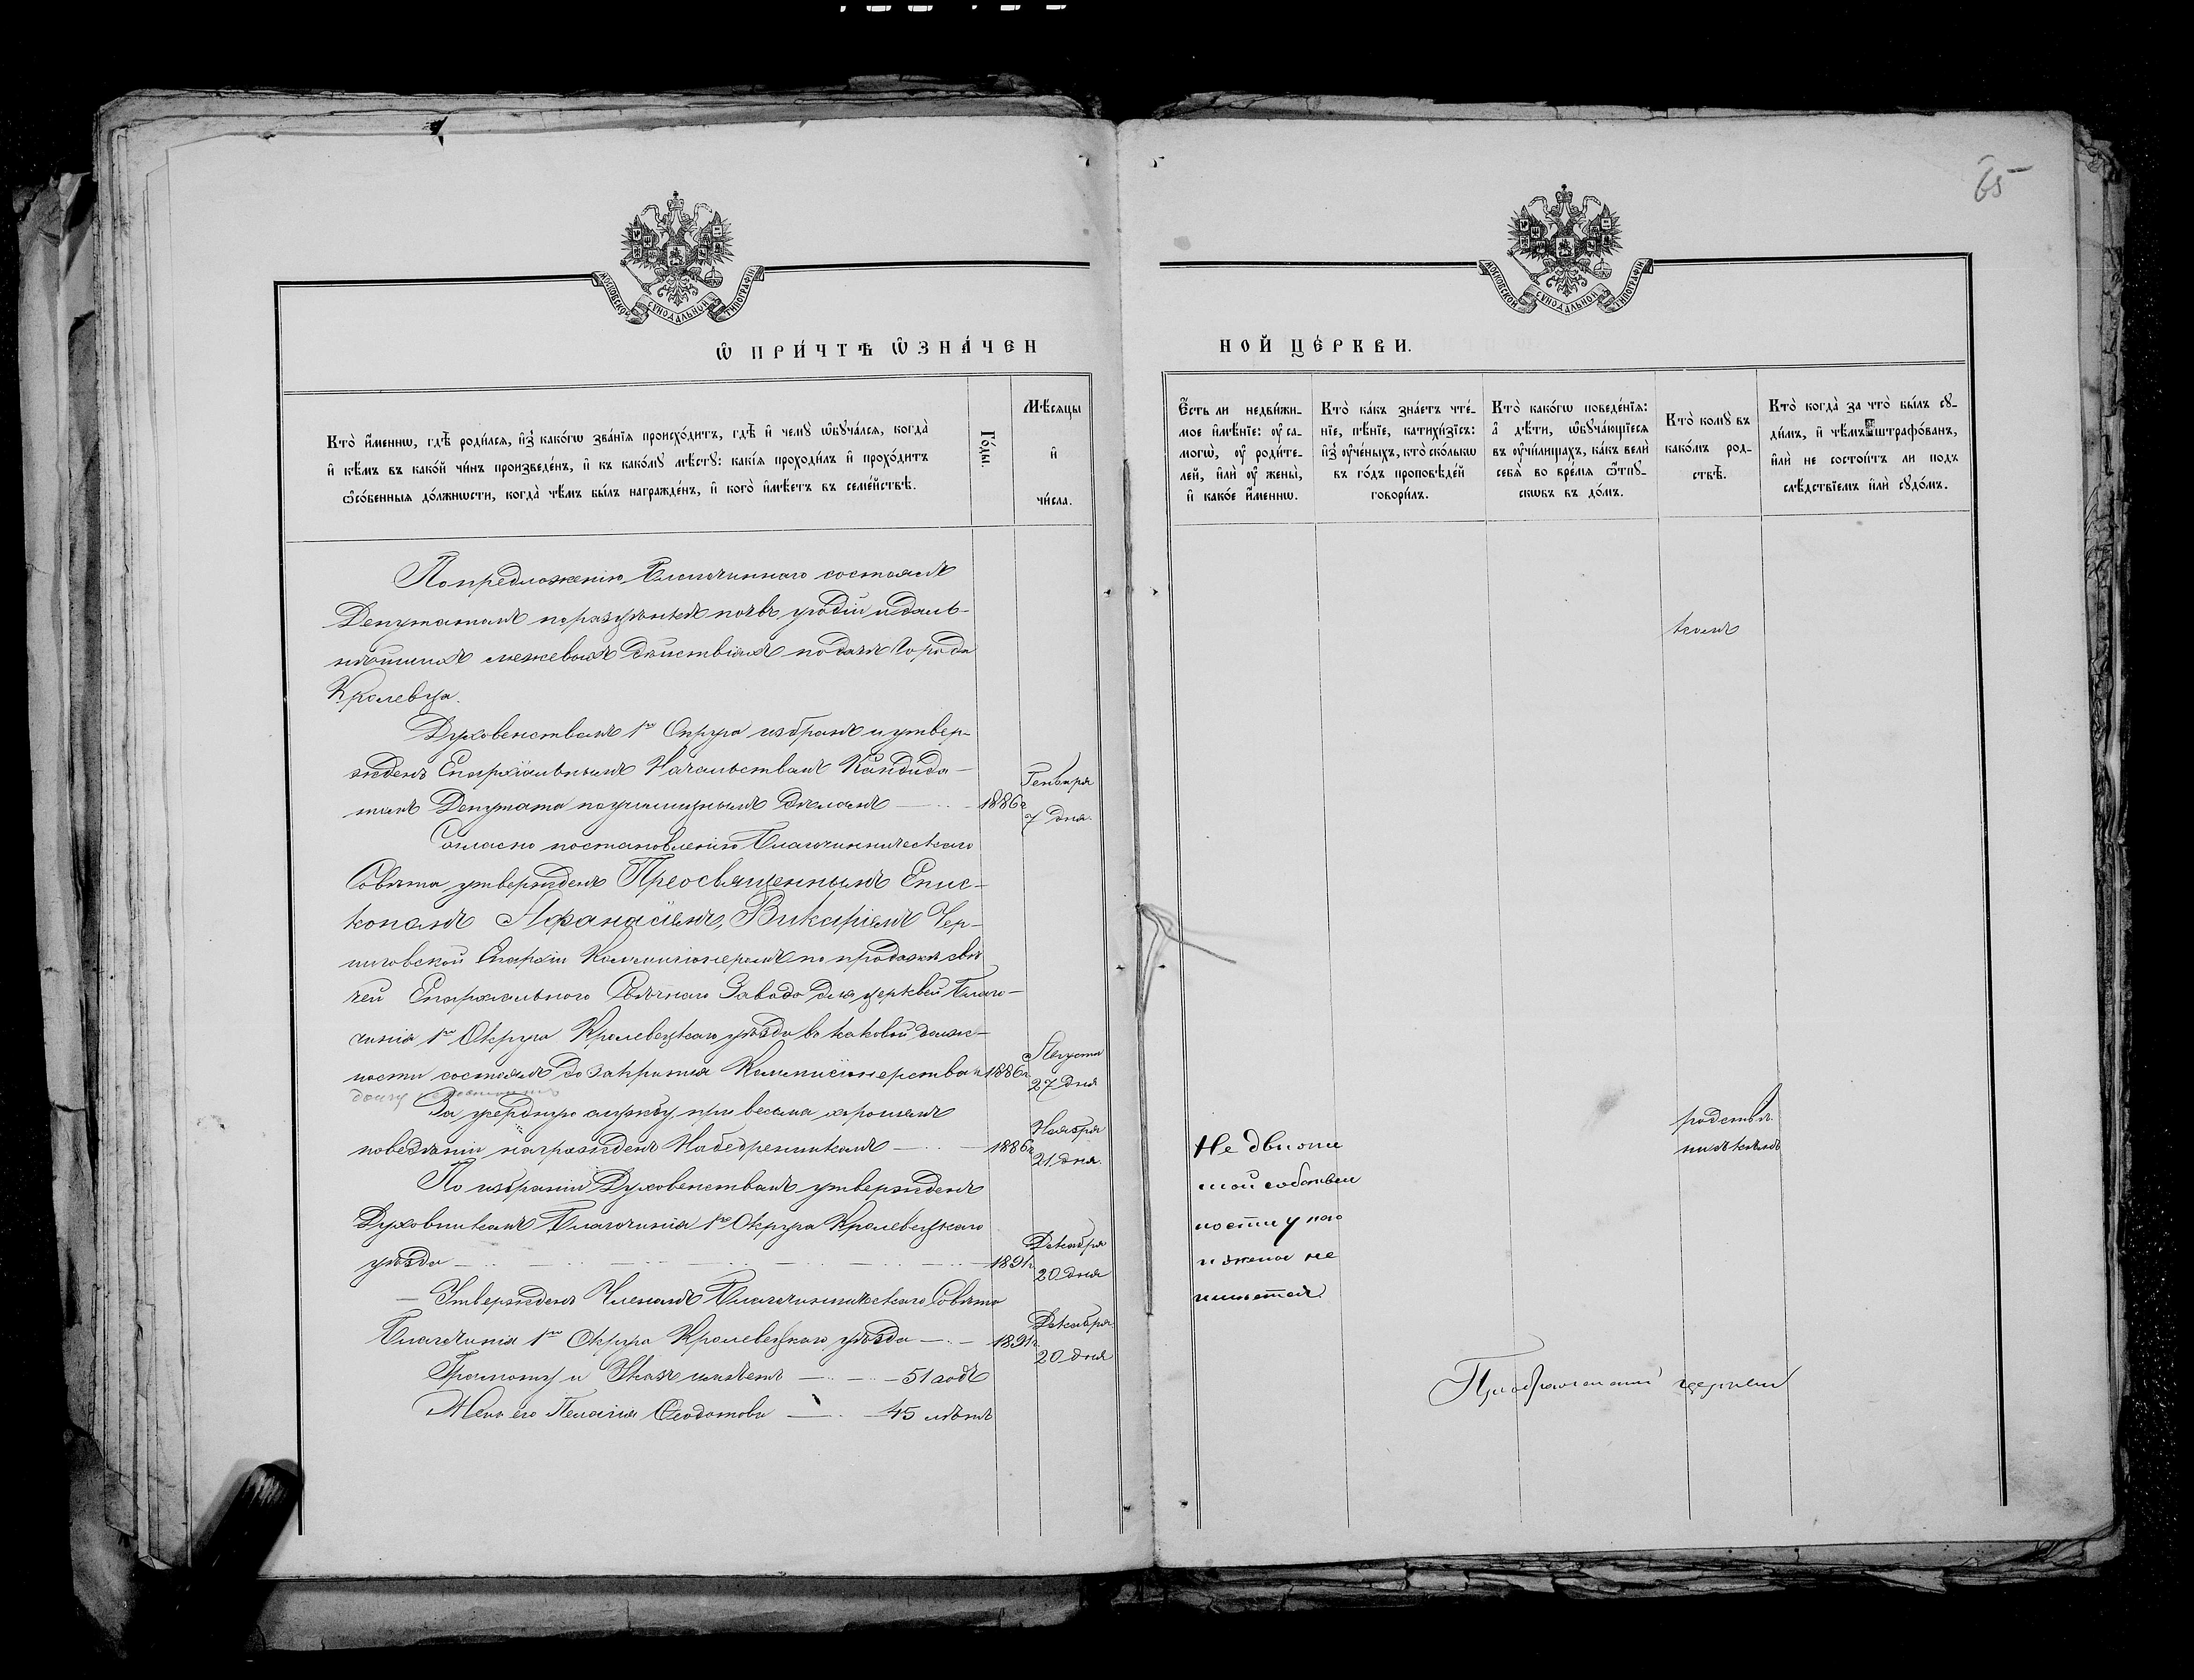 65
МОСКОВСКОЙ СѴНОДАЛЬНОЙ ТИПОГРАФІИ
МОСКОВСКОЙ СѴНОДАЛЬНОЙ ТИПОГРАФІИ
Ѡ ПРИ́ЧТѢ Ѡ҆ЗНА́ЧЕН
НОЙ ЦЕ́РКВИ.
Кто̀ и҆́меннѡ, гдѣ̀ роди́лсѧ, и҆з̾ како́гѡ зва́нїѧ происхо́дитъ, гдѣ̀ и҆ чемꙋ̀ ѡ҆бꙋча́лсѧ, когда̀
и҆ кѣ́мъ въ како́й чи́нъ произведе́нъ, и҆ къ како́мꙋ мѣ́стꙋ: какі́ѧ проходи́лъ и҆ прохо́дитъ
ѡ҆со́бенныѧ до́лжнѡсти, когда̀ чѣ́мъ бы́лъ награжде́нъ, и҆ кого̀ и҆мѣ́етъ въ семе́йствѣ.
Го́ды.
Мѣ́сѧцы
и҆
чи́сла.
Е҆́сть ли недви́жи-
мое и҆мѣ́нїе: ᲂу҆ са-
могѡ̀, ᲂу҆ роди́те-
лей, и҆лѝ ᲂу҆ жены̀,
и҆ како́е и҆́меннѡ.
Кто̀ ка́къ зна́етъ чте́-
нїе, пѣ́нїе, катихи́зїсъ:
и҆з̾ ᲂу҆че́ныхъ, кто̀ ско́лькѡ
въ го́дъ проповѣ́дей
говори́лъ.
Кто̀ како́гѡ поведе́нїѧ:
а҆ дѣ́ти, ѡ҆бꙋча́ющїесѧ
въ ᲂу҆чи́лищахъ, ка́къ велѝ
себѧ̀ во вре́мѧ ѿпꙋ-
скѡвъ въ до́мъ.
Кто̀ комꙋ̀ въ
како́мъ род-
ствѣ̀.
Кто̀ когда̀ за что̀ бы́лъ сꙋ-
ди́мъ, и҆ чѣ́мъ штрафо́ванъ,
и҆лѝ не состои́тъ ли подъ
слѣ́дствїемъ и҆лѝ сꙋдо́мъ.
По предложенію Благочиннаго состоялъ
Депутатомъ по разъ почвъ угодій и даль-
нѣйшихъ межевыхъ дѣйствіяхъ по дачѣ Города
Кролевца.
комъ
Духовенствомъ 1го Округа избранъ и утвер-
жденъ Епархіальнымъ Начальствомъ Кандида-
томъ Депутата по училищнымъ дѣламъ — 1886г Генваря
7 дня.
Согласно постановленію Благочинническаго
Совѣта утвержденъ Преосвященнымъ Епис-
копомъ Афанасіемъ, Викаріемъ Чер-
ниговской Епархіи Коммисіонеромъ по продажѣ свѣ
чей Епархіальнаго Свѣчнаго Завода для церквей Благо-
чинія 1го Округа Кролевецкаго уѣзда въ каковой долж-
ности состоялъ до закрытія Коммисіонерства 1886г. Августа
27 дня
За усердную службу, при весьма хорошемъ
поведеніи награжденъ Набедренникомъ — 1886г Ноября
21 дня.
По избранію Духовенствомъ утвержденъ
Духовникомъ Благочинія 1го Округа Кролевецкаго
уѣзда — 1891г Декабря
20 дня
— Утвержденъ Членомъ Благочинническаго Совѣта
Благочинія 1го Округа Кролевецкаго уѣзда — 1891г Декабря
20 дня
Грамоту и Указъ имѣетъ — 51 годъ
Жена его Пелагія Ѳеодотова — 45 лѣтъ
Недвижи
мой собствен
ности у него
и жены не
имѣется.
родств
ни съ кѣмъ
церкви